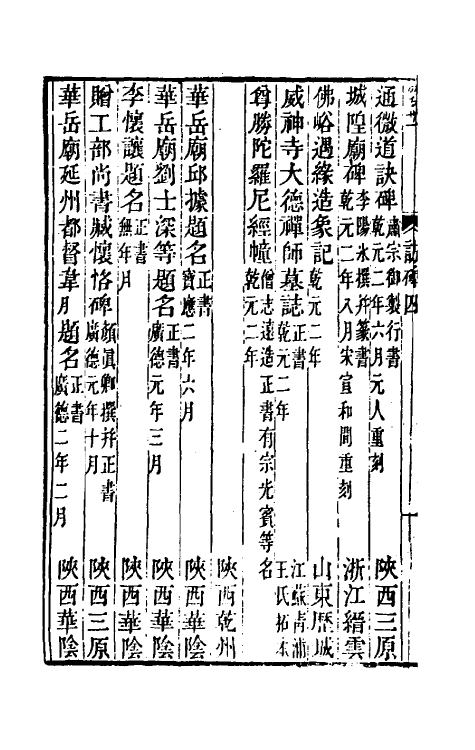 通微道訣碑 肅宗御製行書 乾元二年六月元人重刻 陝西三原
城隍廟碑 李陽冰撰并篆書 乾元二年八月宋宣和間重刻 浙江縉雲
佛峪遇緣造象記 乾元二年 山東歷城
威神寺大德禪師墓誌 正書 乾元二年 江蘇青浦王氏拓本
尊勝陀羅尼經幢 僧志遠造正書有宗光賓等名 乾元二年
陝西乾州
華岳廟邱據題名 正書 寶應二年六月 陝西華陰
華岳廟劉士深等題名 正書 廣德元年三月 陝西華陰
李懷讓題名 正書 無年月 陝西華陰
贈工部尚書臧懷恪碑 顏眞卿撰并正書 廣德元年十月 陝西三原
華岳廟延州都督韋月題名 正書 廣德二年二月 陝西華陰
訪碑四